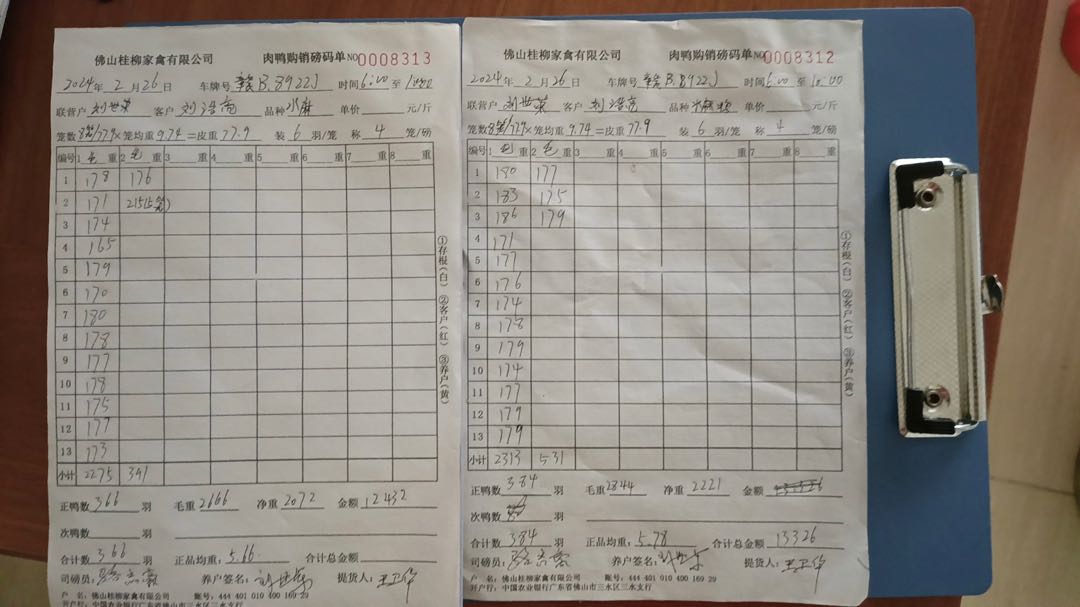 佛山桂柳家禽有限公司 肉鸭购销磅码单 NO0008313
2024年 2月 26日 车牌号 赣B.8922J 时间 6:00 至
联营户 刘世荣 客户 刘浩亮 品种 水麻 单价 元/斤
笼数 8笼/77.9x 笼均重 9.74 =皮重 77.9 装 6 羽/笼 称 4 笼/磅
编号 1 毛 重 2 毛 重 3 重 4 重 5 重 6 重 7 重 8 重
1 178 176
2 171 215(5笼)
3 174
4 165
5 179
6 170
7 180
8 178
9 177
10 178
11 175
12 177
13 173
小计 2275 391
正鸭数 366 羽 毛重 2666 净重 2072 金额 12432
次鸭数 羽
合计数 366 羽 正品均重: 5.66 合计总金额
司磅员: 养户签名: 刘世荣 提货人: 王卫华
户 名: 佛山桂柳家禽有限公司 账号: 444 401 010 400 169 29
开户行: 中国农业银行广东省佛山市三水区三水支行
①存根(白) ②客户(红) ③养户(黄)
佛山桂柳家禽有限公司 肉鸭购销磅码单 NO0008312
2024年 2月 26日 车牌号 赣B.8922J 时间 6:00 至 10:00
联营户 刘世荣 客户 刘浩亮 品种 单价 元/斤
笼数 8笼/77.9x 笼均重 9.74 =皮重 77.9 装 6 羽/笼 称 4 笼/磅
编号 1 毛 重 2 毛 重 3 重 4 重 5 重 6 重 7 重 8 重
1 180 177
2 183 175
3 186 179
4 171
5 177
6 176
7 174
8 178
9 179
10 174
11 177
12 179
13 179
小计 2313 531
正鸭数 384 羽 毛重 2844 净重 2221 金额
次鸭数 羽
合计数 384 羽 正品均重: 5.78 合计总金额 13326
司磅员: 养户签名: 刘世荣 提货人: 王卫华
户 名: 佛山桂柳家禽有限公司 账号: 444 401 010 400 169 29
开户行: 中国农业银行广东省佛山市三水区三水支行
①存根(白) ②客户(红) ③养户(黄)